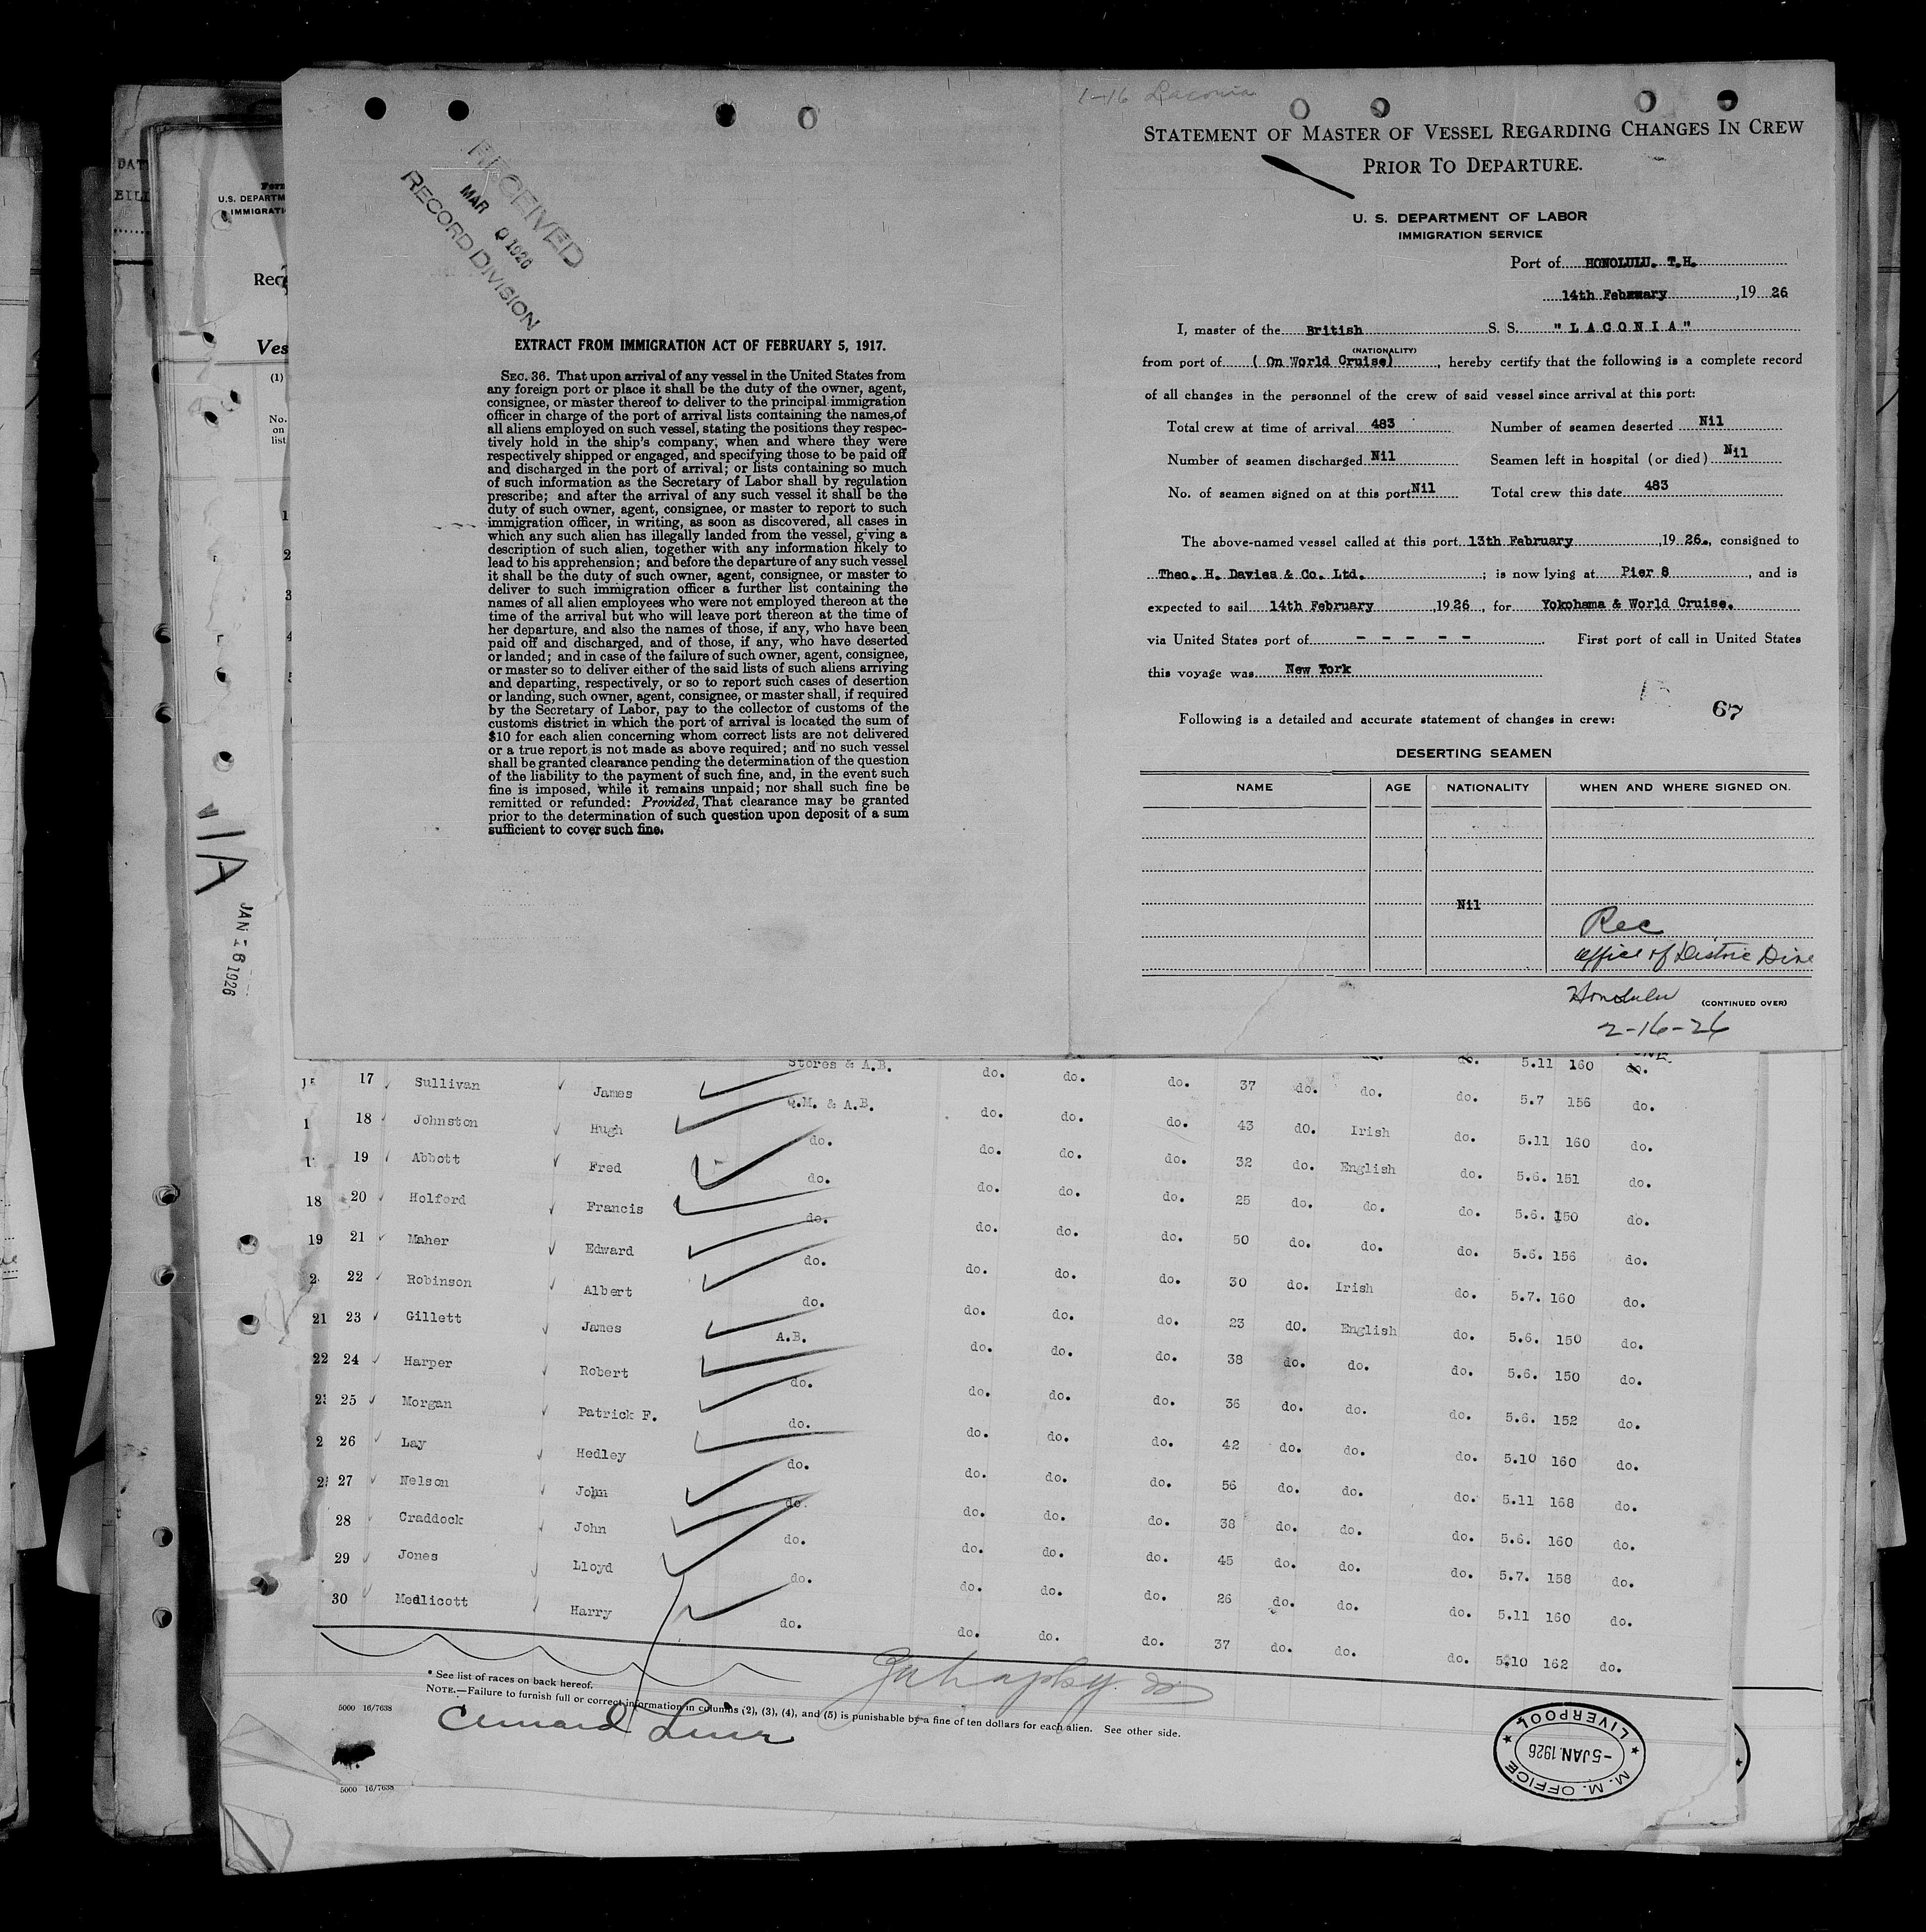 1-16 Laconia
RECEIVED
MAR 9 1926
RECORD DIVISION
EXTRACT FROM IMMIGRATION ACT OF FEBRUARY 5, 1917.
SEC. 36. That upon arrival of any vessel in the United States from
any foreign port or place it shall be the duty of the owner, agent,
consignee, or master thereof to deliver to the principal immigration
officer in charge of the port of arrival lists containing the names of
all aliens employed on such vessel, stating the positions they respec-
tively hold in the ship's company, when and where they were
respectively shipped or engaged, and specifying those to be paid off
and discharged in the port of arrival; or lists containing so much
of such information as the Secretary of Labor shall by regulation
prescribe; and after the arrival of any such vessel it shall be the
duty of such owner, agent, consignee, or master to report to such
immigration officer, in writing, as soon as discovered, all cases in
which any such alien has illegally landed from the vessel, giving a
description of such alien, together with any information likely to
lead to his apprehension; and before the departure of any such vessel
it shall be the duty of such owner, agent, consignee, or master to
deliver to such immigration officer a further list containing the
names of all alien employees who were not employed thereon at the
time of the arrival but who will leave port thereon at the time of
her departure, and also the names of those, if any, who have been
paid off and discharged, and of those, if any, who have deserted
or landed; and in case of the failure of such owner, agent, consignee,
or master so to deliver either of the said lists of such aliens arriving
and departing, respectively, or so to report such cases of desertion
or landing, such owner, agent, consignee, or master shall, if required
by the Secretary of Labor, pay to the collector of customs of the
customs district in which the port of arrival is located the sum of
$10 for each alien concerning whom correct lists are not delivered
or a true report is not made as above required; and no such vessel
shall be granted clearance pending the determination of the question
of the liability to the payment of such fine, and, in the event such
fine is imposed, while it remains unpaid; nor shall such fine be
remitted or refunded: Provided, That clearance may be granted
prior to the determination of such question upon deposit of a sum
sufficient to cover such fine.
STATEMENT OF MASTER OF VESSEL REGARDING CHANGES IN CREW
PRIOR TO DEPARTURE.
U. S. DEPARTMENT OF LABOR
IMMIGRATION SERVICE
Port of HONOLULU. T.H.
14th February, 19 26
I, master of the British S. S. "LACONIA"
(NATIONALITY)
from port of ( On World Cruise), hereby certify that the following is a complete record
of all changes in the personnel of the crew of said vessel since arrival at this port:
Total crew at time of arrival 483 Number of seamen deserted Nil
Number of seamen discharged Nil Seamen left in hospital (or died) Nil
No. of seamen signed on at this port Nil Total crew this date 483
The above-named vessel called at this port 13th February, 19 26., consigned to
Theo. H. Davies & Co. Ltd. ; is now lying at Pier 8, and is
expected to sail 14th February, 19 26, for Yokohama & World Cruise.
via United States port of - - - - - First port of call in United States
this voyage was New York
67
Following is a detailed and accurate statement of changes in crew:
DESERTING SEAMEN
NAME AGE NATIONALITY WHEN AND WHERE SIGNED ON.
Nil
Rec
Office of Distric Dire
Honolulu (CONTINUED OVER)
2-16-26
U.S. DEPARTM
IMMIGRATI
Ves
(1)
No.
on
list
DAT
BILL
1A
JAN 16 1926
Stores & A.B. do. 5.11 160 do.
17 Sullivan James Q.M. & A.B. do. do. do. 37 do. do. do. 5.7 156 do.
18 Johnston Hugh do. do. do. do. 43 do. Irish do. 5.11 160 do.
19 Abbott Fred do. do. do. do. 32 do. English do. 5.6. 151 do.
18 20 Holford Francis do. do. do. do. 25 do. do. do. 5.6. 150 do.
19 21 Maher Edward do. do. do. do. 50 do. do. do. 5.6. 156 do.
22 Robinson Albert do. do. do. do. 30 do. Irish do. 5.7. 160 do.
21 23 Gillett James A.B. do. do. do. 23 do. English do. 5.6. 150 do.
22 24 Harper Robert do. do. do. do. 38 do. do. do. 5.6. 150 do.
25 Morgan Patrick F. do. do. do. do. 36 do. do. do. 5.6. 152 do.
26 Lay Hedley do. do. do. do. 42 do. do. do. 5.10 160 do.
27 Nelson John do. do. do. do. 56 do. do. do. 5.11 168 do.
28 Craddock John do. do. do. do. 38 do. do. do. 5.6. 160 do.
29 Jones Lloyd do. do. do. do. 45 do. do. do. 5.7. 158 do.
30 Medlicott Harry do. do. do. do. 26 do. do. do. 5.11 160 do.
do. do. do. 37 do. do. do. 5.10 162 do.
* See list of races on back hereof.
NOTE.—Failure to furnish full or correct information in columns (2), (3), (4), and (5) is punishable by a fine of ten dollars for each alien. See other side.
5000 16/7638
Cunard Line
M. M. OFFICE
-5 JAN. 1926
LIVERPOOL
5000 16/7638